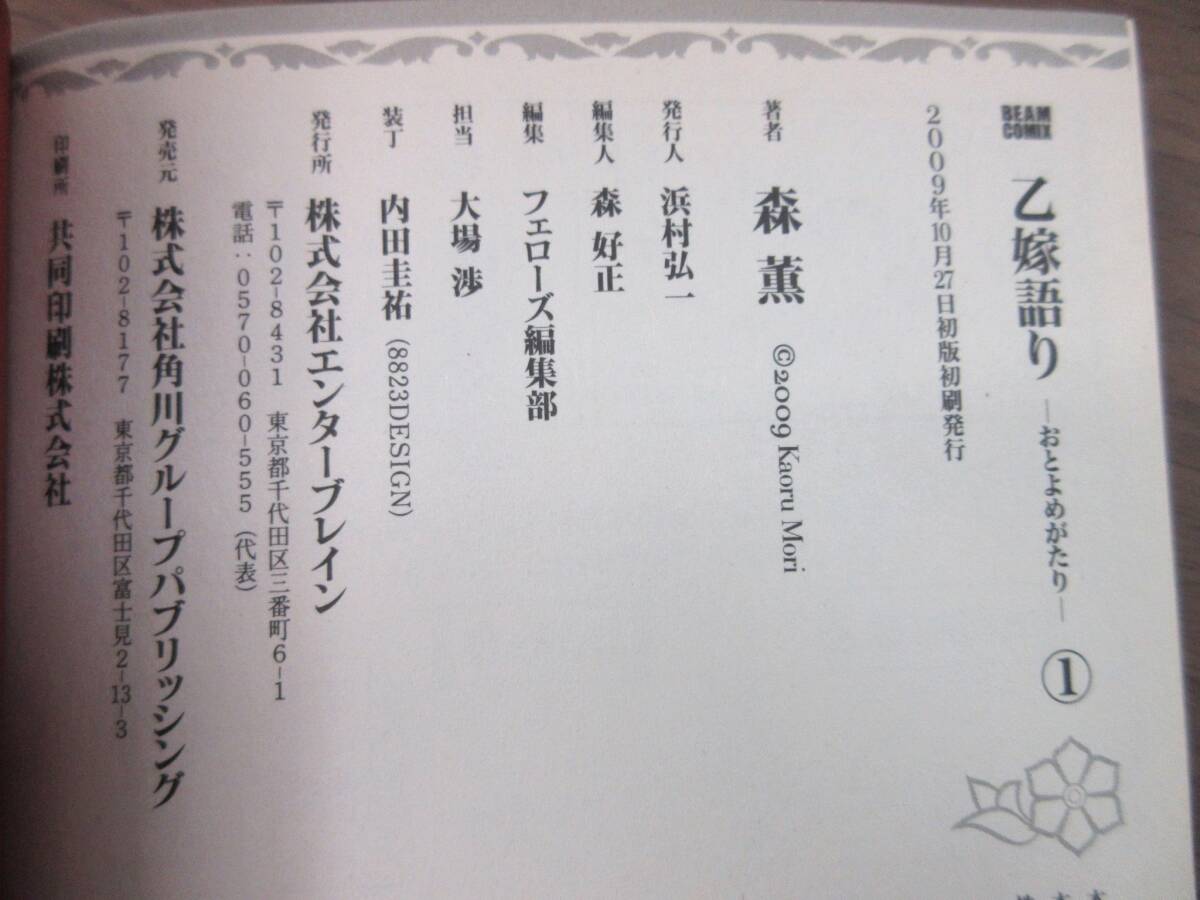 BEAM COMIX
乙嫁語り ―おとよめがたり― ①
2009年10月27日初版初刷発行
著者 森 薫 ©2009 Kaoru Mori
発行人 浜村弘一
編集人 森 好正
編集 フェローズ編集部
担当 大場 渉
装丁 内田圭祐（8823DESIGN）
発行所 株式会社エンターブレイン
〒102-8431 東京都千代田区三番町6-1
電話：0570-060-555（代表）
発売元 株式会社角川グループパブリッシング
〒102-8177 東京都千代田区富士見2-13-3
印刷所 共同印刷株式会社